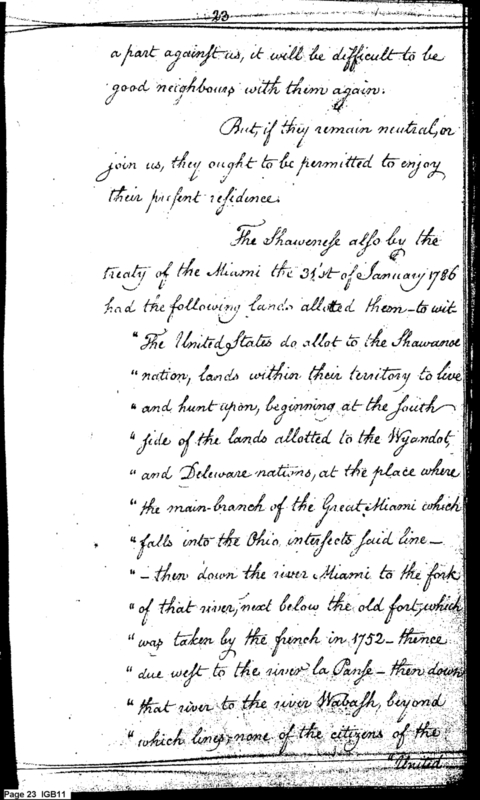 23
a part against us, it will be difficult to be
good neighbours with them again.
But, if they remain neutral, or
join us, they ought to be permitted to enjoy
their present residence.
The Shawenese also by the
treaty of the Miami the 31st of January 1786
had the following lands alloted them - to wit
"The United States do allot to the Shawanoe
"nation, lands within their territory to live
"and hunt upon, beginning at the south
"side of the lands allotted to the Wyandot,
"and Deleware nations, at the place where
"the main-branch of the Great Miami which
"falls into the Ohio, intersects said line -
"- then down the river Miami to the fork
"of that river, next below the old fort, which
"was taken by the french in 1752 - thence
"due west to the river la Panse - then down
"that river to the river Wabash, beyond
"which lines, none of the citizens of the
"United
Page 23 IGB11